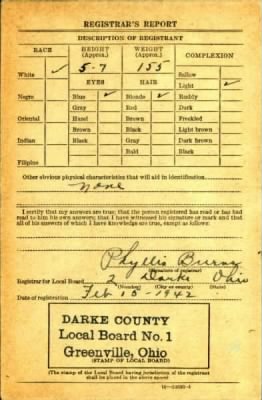 REGISTRAR'S REPORT
DESCRIPTION OF REGISTRANT
RACE HEIGHT (Approx.) WEIGHT (Approx.) COMPLEXION
White ✓ 5-7 155 Sallow
EYES HAIR Light ✓
Negro Blue ✓ Blonde ✓ Ruddy
Gray Red Dark
Oriental Hazel Brown Freckled
Brown Black Light brown
Indian Black Gray Dark brown
Bald Black
Filipino
Other obvious physical characteristics that will aid in identification
None
I certify that my answers are true; that the person registered has read or has had
read to him his own answers; that I have witnessed his signature or mark and that
all of his answers of which I have knowledge are true, except as follows:
Phyllis
(Signature of registrar)
Registrar for Local Board 2 Darke Ohio
(Number) (City or county) (State)
Date of registration Feb 15-1942
DARKE COUNTY
Local Board No. 1
Greenville, Ohio
(STAMP OF LOCAL BOARD)
(The stamp of the Local Board having jurisdiction of the registrant
shall be placed in the above space)